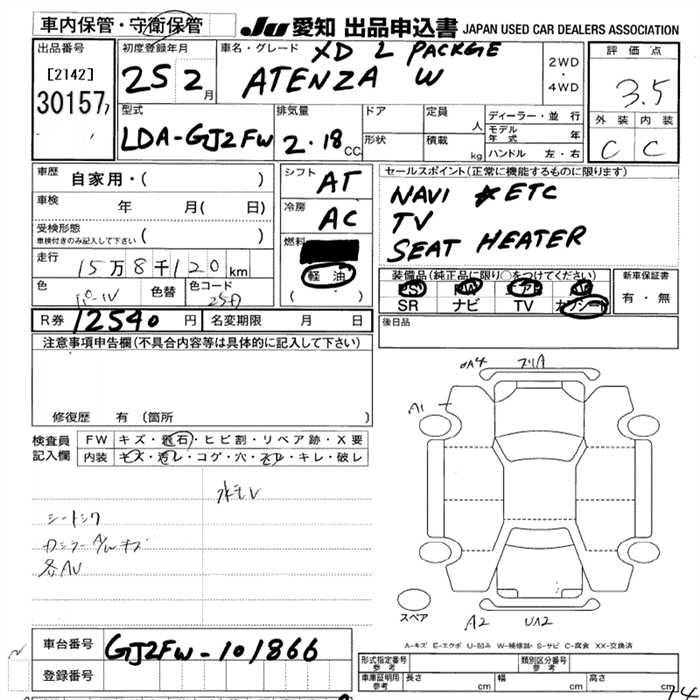 車内保管・守衛保管
JU 愛知 出品申込書 JAPAN USED CAR DEALERS ASSOCIATION
出品番号
[2142]
30157
初度登録年月
25 2月
車名・グレード
XD L PACKGE
ATENZA W
2WD
・
4WD
評価点
3.5
外装 内装
C C
型式
LDA-GJ2FW
排気量
2.18 CC
ドア
形状
定員 人
積載 kg
ディーラー・並行
モデル年式 年
ハンドル 左・右
車歴 自家用・( )
車検 年 月( 日)
受検形態
車検付きのみ記入して下さい ( )
走行 15万8千120km
色 色替 色コード
パール 25D
シフト AT
冷房 AC
燃料
軽油
(・ )
セールスポイント(正常に機能するものに限ります)
NAVI ETC
TV
SEAT HEATER
装備品(純正品に限り○をつけてください)
PS PW エアB AW
SR ナビ TV カワシート
新車保証書
有・無
後日品
R券 12540円 名変期限 月 日
注意事項申告欄(不具合内容等は具体的に記入して下さい)
修復歴 有(箇所 )
検査員記入欄
FW キズ・飛石・ヒビ割・リペア跡・X要
内装 キズ・汚レ・コゲ・穴・スレ・キレ・破レ
シートシワ
各AU
A1
スリA
スペア
A2 UA2
A-キズ E-エクボ U-凹み W-補修跡・S-サビ C-腐食 XX-交換済
車台番号 GJ2FW-101866
登録番号
形式指定番号 参考
類別区分番号 参考
車庫証明用 参考 長さ cm 幅 cm 高さ cm